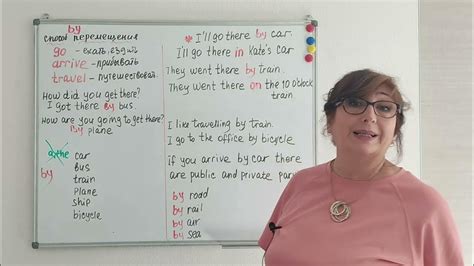 by
способ перемещения
go - ехать, ездить
arrive - прибывать
travel - путешествовать.
How did you get there?
I got there by bus.
How are you going to get there?
By plane
a/the
by
car
bus
train
plane
ship
bicycle
I'll go there by car.
I'll go there in Kate's car
They went there by train.
They went there on the 10 o'clock
train
I like travelling by train.
I go to the office by bicycle
if you arrive by car there
are public and private par
by road
by rail
by air
by sea